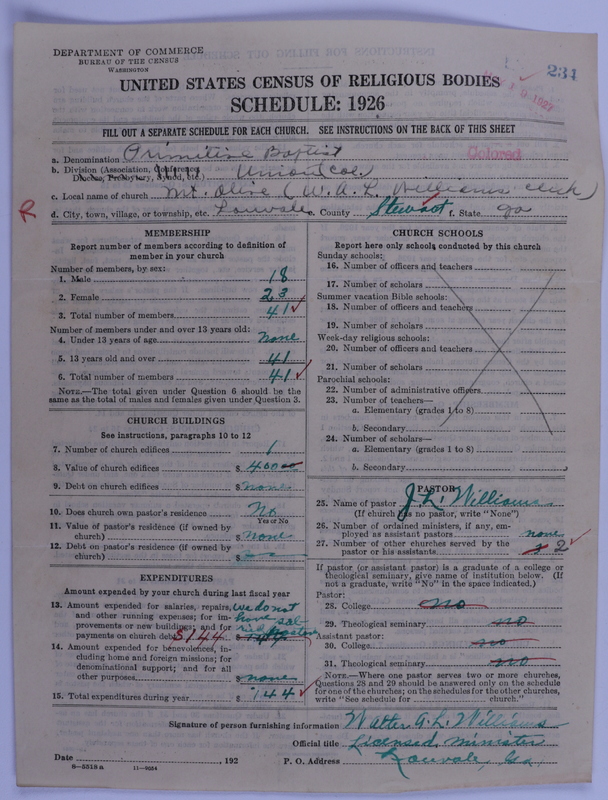 DEPARTMENT OF COMMERCE
BUREAU OF THE CENSUS
WASHINGTON
234
UNITED STATES CENSUS OF RELIGIOUS BODIES
SCHEDULE: 1926
FILL OUT A SEPARATE SCHEDULE FOR EACH CHURCH. SEE INSTRUCTIONS ON THE BACK OF THIS SHEET
a. Denomination Primitive Baptist Colored
b. Division (Association, Conference,
Diocese, Presbytery, Synod, etc.) Union col.
c. Local name of church Mt. Olive (W. A. L. Williams clerk)
R d. City, town, village, or township, etc. Louvale e. County Stewart f. State Ga
MEMBERSHIP
Report number of members according to definition of
member in your church
Number of members, by sex:
1. Male 18
2. Female 23
3. Total number of members 41
Number of members under and over 13 years old:
4. Under 13 years of age None
5. 13 years old and over 41
6. Total number of members 41
NOTE.—The total given under Question 6 should be the
same as the total of males and females given under Question 3.
CHURCH BUILDINGS
See instructions, paragraphs 10 to 12
7. Number of church edifices 1
8. Value of church edifices $ 400 00
9. Debt on church edifices $ None
10. Does church own pastor's residence? No
Yes or No
11. Value of pastor's residence (if owned by
church) $ None
12. Debt on pastor's residence (if owned by
church) $
EXPENDITURES
Amount expended by your church during last fiscal year
13. Amount expended for salaries, repairs, We do not
and other running expenses; for im- have sal-
provements or new buildings; and for
payments on church debt $144
14. Amount expended for benevolences, in-
cluding home and foreign missions; for
denominational support; and for all
other purposes $ none
15. Total expenditures during year $ 144
CHURCH SCHOOLS
Report here only schools conducted by this church
Sunday schools:
16. Number of officers and teachers
17. Number of scholars
Summer vacation Bible schools:
18. Number of officers and teachers
19. Number of scholars
Week-day religious schools:
20. Number of officers and teachers
21. Number of scholars
Parochial schools:
22. Number of administrative officers
23. Number of teachers—
a. Elementary (grades 1 to 8)
b. Secondary
24. Number of scholars—
a. Elementary (grades 1 to 8)
b. Secondary
PASTOR
25. Name of pastor J. L. Williams
(If church has no pastor, write "None")
26. Number of ordained ministers, if any, em-
ployed as assistant pastors none
27. Number of other churches served by the
pastor or his assistants 2
If pastor (or assistant pastor) is a graduate of a college or
theological seminary, give name of institution below. (If
not a graduate, write "No" in the space indicated.)
Pastor:
28. College no
29. Theological seminary no
Assistant pastor:
30. College no
31. Theological seminary no
NOTE.—Where one pastor serves two or more churches,
Questions 28 and 29 should be answered only on the schedule
for one of the churches; on the schedules for the other churches,
write "See schedule for church."
Signature of person furnishing information Walter A. L. Williams
Official title Licensed minister
Date , 192 P. O. Address Louvale, Ga.
8-5318a 11-9054